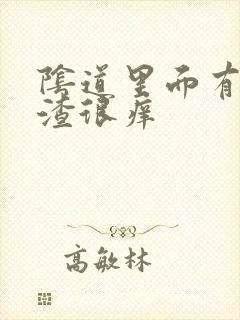 陰道里而有
渣很痒
高敏林